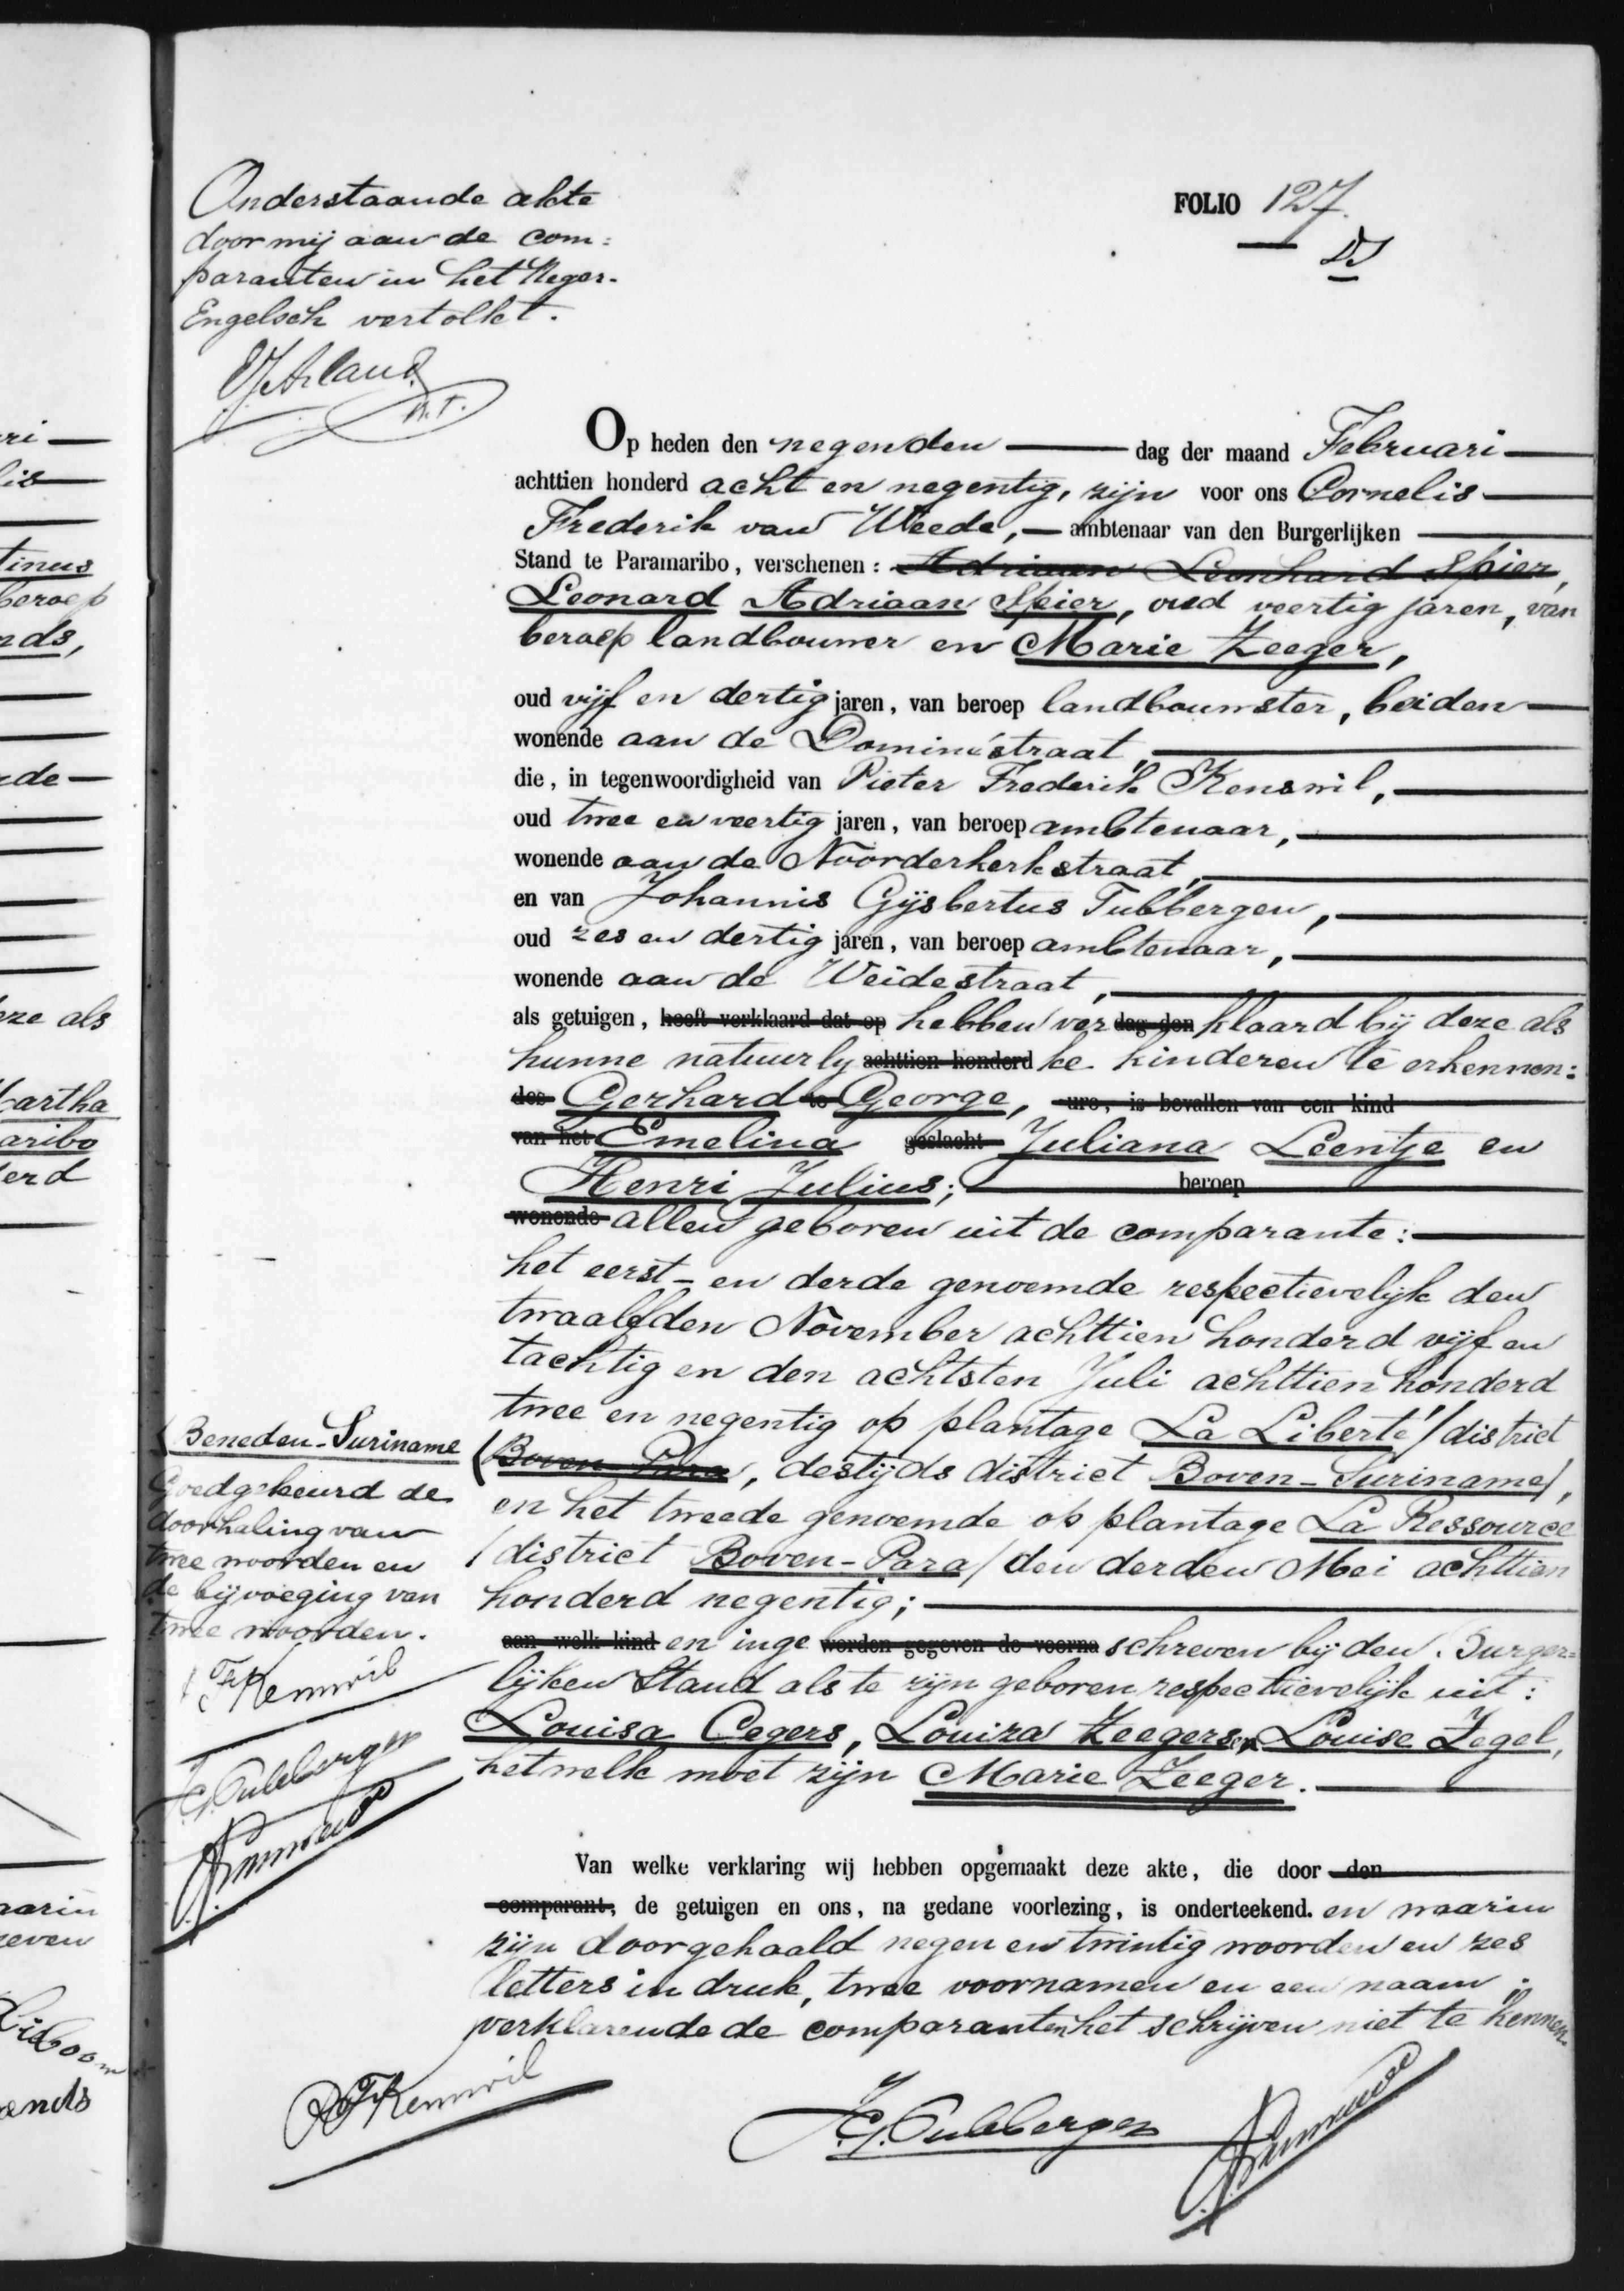 Onderstaande akte
door mij aan de com:
paranten in het Neger-
Engelsch vertolkt.
FOLIO 127.
Op heden den negenden dag der maand Februari
achttien honderd acht en negentig, zijn voor ons Cornelis
Frederik van Weede, ambtenaar van den Burgerlijken
Stand te Paramaribo, verschenen: Adriaan Leonhard Spier,
Leonard Adriaan Spier, oud veertig jaren, van
beroep landbouwer en Marie Zeeger,
oud vijf en dertig jaren, van beroep landbouwster, beiden
wonende aan de Dominéstraat,
die, in tegenwoordigheid van Pieter Frederik Kenswil,
oud twee en veertig jaren, van beroep ambtenaar,
wonende aan de Noorderkerkstraat,
en van Johannis Gijsbertus Tubbergen,
oud zes en dertig jaren, van beroep ambtenaar,
wonende aan de Weidestraat,
als getuigen, heeft verklaard dat op hebben ver dag den klaard bij deze als
hunne natuurly achttien honderd ke kinderen te erkennen:
des Gerhard te George, ure, is bevallen van een kind
van het Emelina geslacht Juliana Leentje en
Henri Julius; beroep
wonende allen geboren uit de comparante:
het eerst- en derde genoemde respectievelijk den
twaalfden November achttien honderd vijf en
tachtig en den achtsten Juli achttien honderd
twee en negentig op plantage La Liberté /district
(Boven Para, destijds district Boven-Suriname/,
en het tweede genoemde op plantage La Ressource
/district Boven-Para/ den derden Mei achttien
honderd negentig;
aan welk kind en inge worden gegeven de voorna schreven bij den Burger=
lijken Stand als te zijn geboren respectievelijk uit:
Louisa Cegers, Louiza Zeegers en Louise Zegel,
hetwelk moet zijn Marie Zeeger.
(Beneden-Suriname
Goedgekeurd de
doorhaling van
twee woorden en
de bijvoeging van
twee woorden.
PFKenswil
J.G. Tubbergen
Van welke verklaring wij hebben opgemaakt deze akte, die door den
comparant, de getuigen en ons, na gedane voorlezing, is onderteekend. en waarin
zijn doorgehaald negen en twintig woorden en zes
letters in druk, twee voornamen en een naam;
verklarende de comparanten het schrijven niet te kennen
PFKenswil
J.G. Tubbergen
ri
lis
tinus
beroep
nds,
rde
eze als
Martha
aribo
erd
aarin
geven
ends